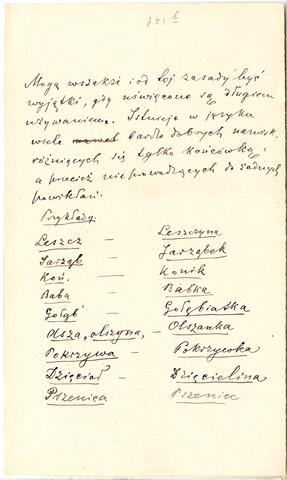 121 b
Mogą wszakże i od tej zasady być
wyjątki, gdy uświęcone są długiem
używaniem. Istnieje w języku
wiele nawet bardzo dobrych nazwisk
różniących się tylko końcówką,
a przecież nieprowadzących do żadnych
powikłań.
Przykłady:
Leszcz — Leszczyna
Jarząb — Jarząbek
Koń — Konik
Baba — Babka
Gołąb — Gołąbiatka
Olsza, olszyna, — Olszanka
Pokrzywa — Pokrzywka
Dzięcioł — Dzięcielina
Pszenica Pszeniec